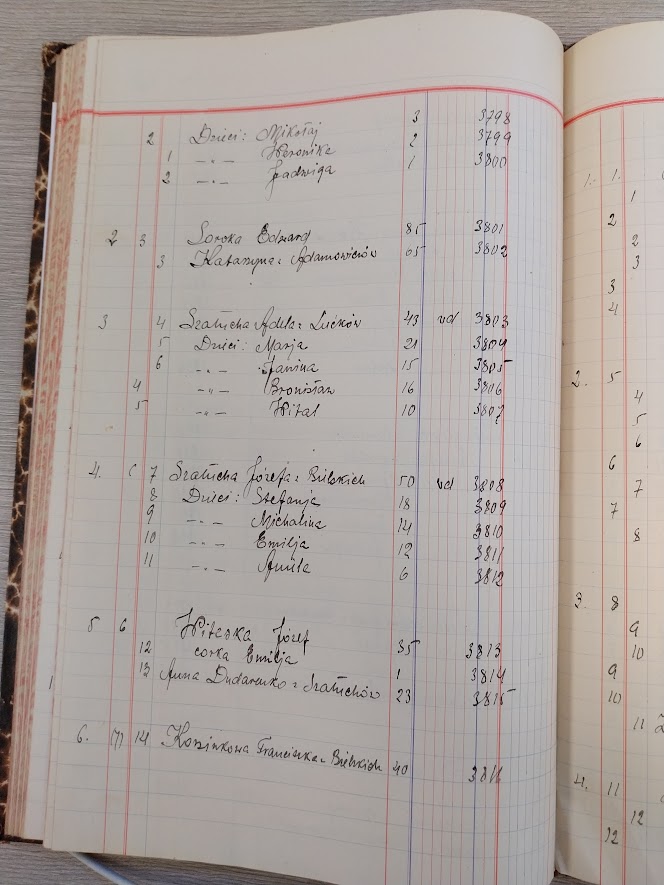 2 Dzieci: Mikołaj 3 3798
1 -„- Weronika 2 3799
2 -„- Jadwiga 1 3800
2 3 Soroka Edward 85 3801
3 Katarzyna z Adamowiczów 65 3802
3 4 Szałucha Adela z Lućków 43 wd 3803
5 Dzieci: Marja 21 3804
6 -„- Janina 15 3805
4 -„- Bronisław 16 3806
5 -„- Wital 10 3807
4. 7 Szałucha Józefa z Bielskich 50 wd 3808
8 Dzieci: Stefanja 18 3809
9 -„- Michalina 14 3810
10 -„- Emilja 12 3811
11 -„- 6 3812
5 6 Józef 35 3813
12 córka Emilja 1 3814
13 Anna Dudarenko z Szałuchów 23 3815
6. (7) 14 Franciszka z Bielskich 40 3816
1. 1.
1
2
2
3
3
4
2. 5
4
5
6
6
7
7
8
3. 8
9
10
9
10
11
4. 11
12
12